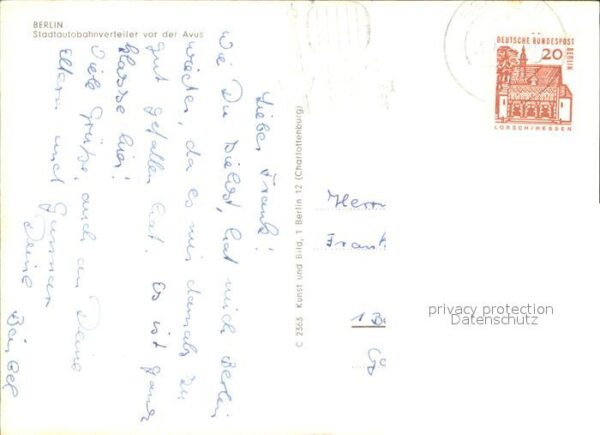 BERLIN
Stadtautobahnverteiler vor der Avus
Lieber Frank!
Wie Du siehst, hat mich Berlin
wieder, da es mir damals zu
gut gefallen hat. Es ist ganz
klasse hier!
Viele Grüße, auch an Deine
Eltern und
Deine
C 2363 Kunst und Bild, 1 Berlin 12 (Charlottenburg)
DEUTSCHE BUNDESPOST
BERLIN
20
LORSCH/HESSEN
Herrn
Frank
1 Be
privacy protection
Datenschutz